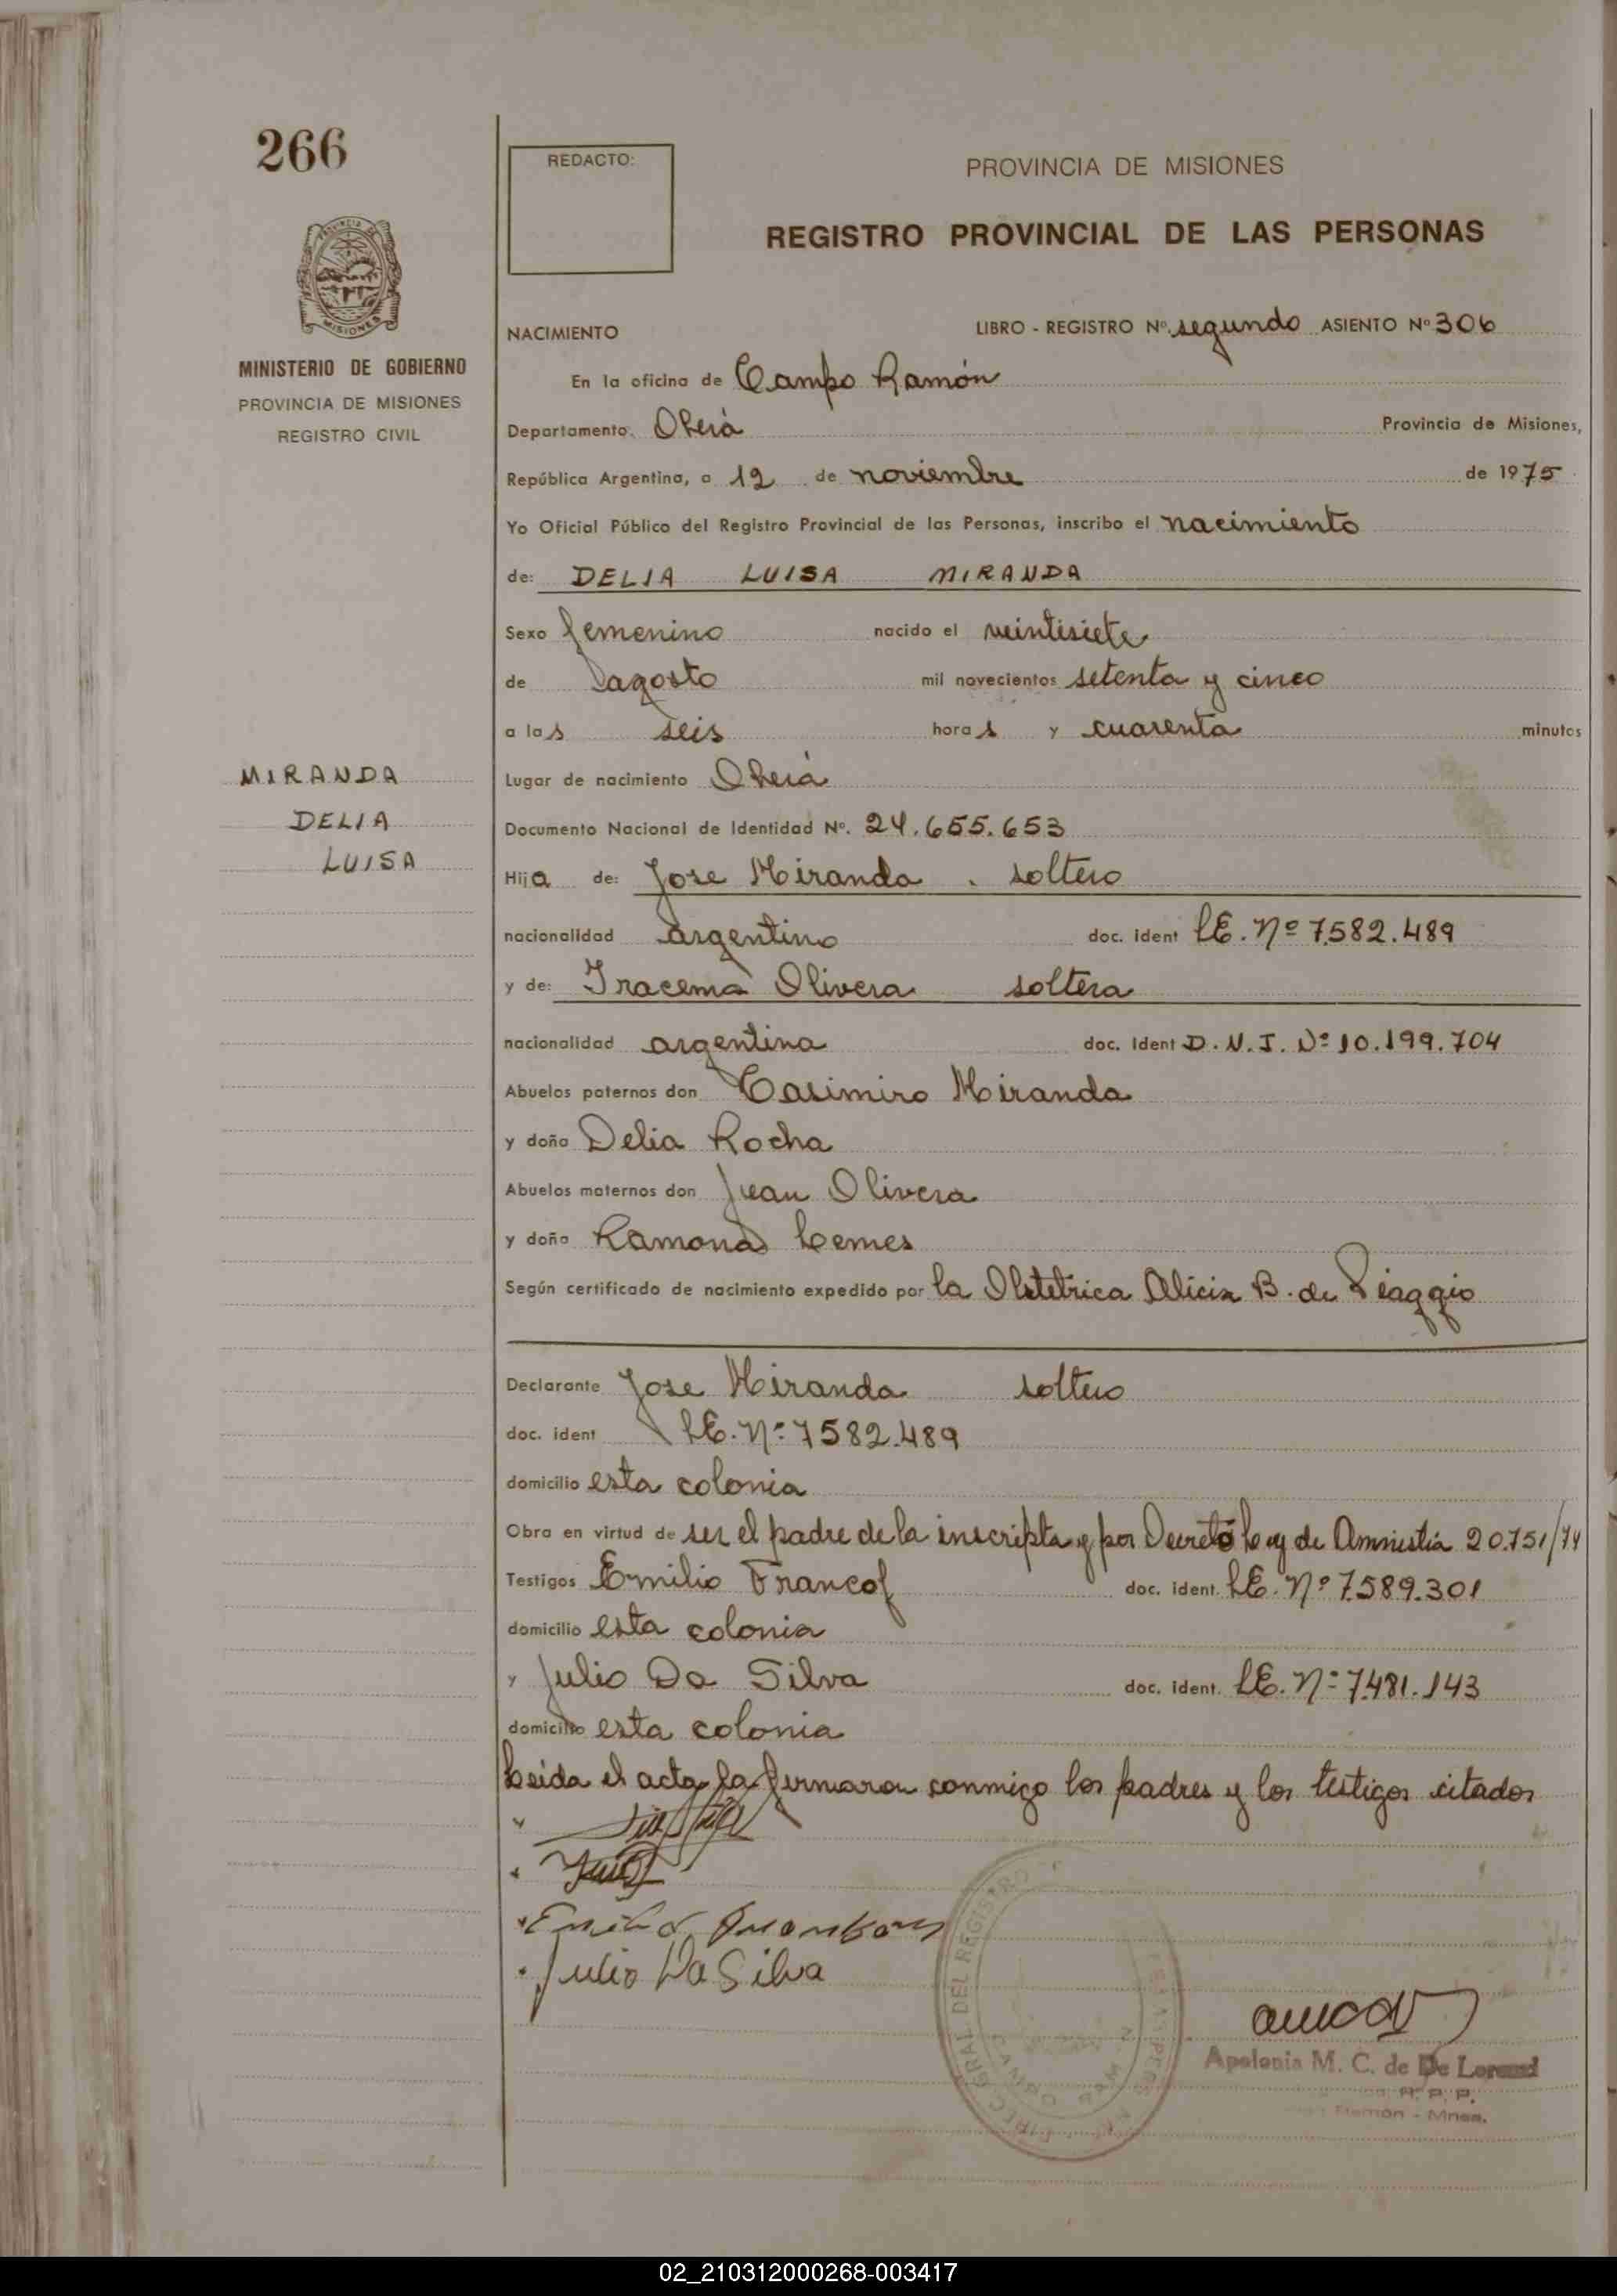 266
REDACTO:
PROVINCIA DE MISIONES
REGISTRO PROVINCIAL DE LAS PERSONAS
MISIONES
MINISTERIO DE GOBIERNO
PROVINCIA DE MISIONES
REGISTRO CIVIL
NACIMIENTO LIBRO - REGISTRO Nº. segundo ASIENTO Nº 306
En la oficina de Campo Ramón
Departamento. Oberá Provincia de Misiones,
República Argentina, a 12 de noviembre de 1975
Yo Oficial Público del Registro Provincial de las Personas, inscribo el nacimiento
de: DELIA LUISA MIRANDA
Sexo femenino nacido el veintisiete
de agosto mil novecientos setenta y cinco
a las seis horas y cuarenta minutos
MIRANDA
DELIA
LUISA
Lugar de nacimiento Oberá
Documento Nacional de Identidad Nº. 24.655.653
Hija de: Jose Miranda . soltero
nacionalidad argentino doc. ident LE. Nº 7.582.489
y de: Iracema Olivera soltera
nacionalidad argentina doc. Ident D.N.I. Nº 10.199.704
Abuelos paternos don Casimiro Miranda
y doña Delia Rocha
Abuelos maternos don Juan Olivera
y doña Ramona Lemes
Según certificado de nacimiento expedido por la Obstetrica Alicia B. de Piaggio
Declarante Jose Miranda soltero
doc. ident LE. Nº 7582.489
domicilio esta colonia
Obra en virtud de ser el padre de la inscripta y por Decreto Ley de Amnistia 20.751/74
Testigos Emilio Francof doc. ident. LE. Nº 7.589.301
domicilio esta colonia
y Julio Da Silva doc. ident. LE. Nº 7.481.143
domicilio esta colonia
Leida el acta la firmaron conmigo los padres y los testigos citados
Emilio
Julio Da Silva
DIREC. GRAL. DEL REGISTRO
CAMPO RAMON
Apolonia M. C. de De Lorend
R. P. P.
Ramón - Mnes.
02_210312000268-003417